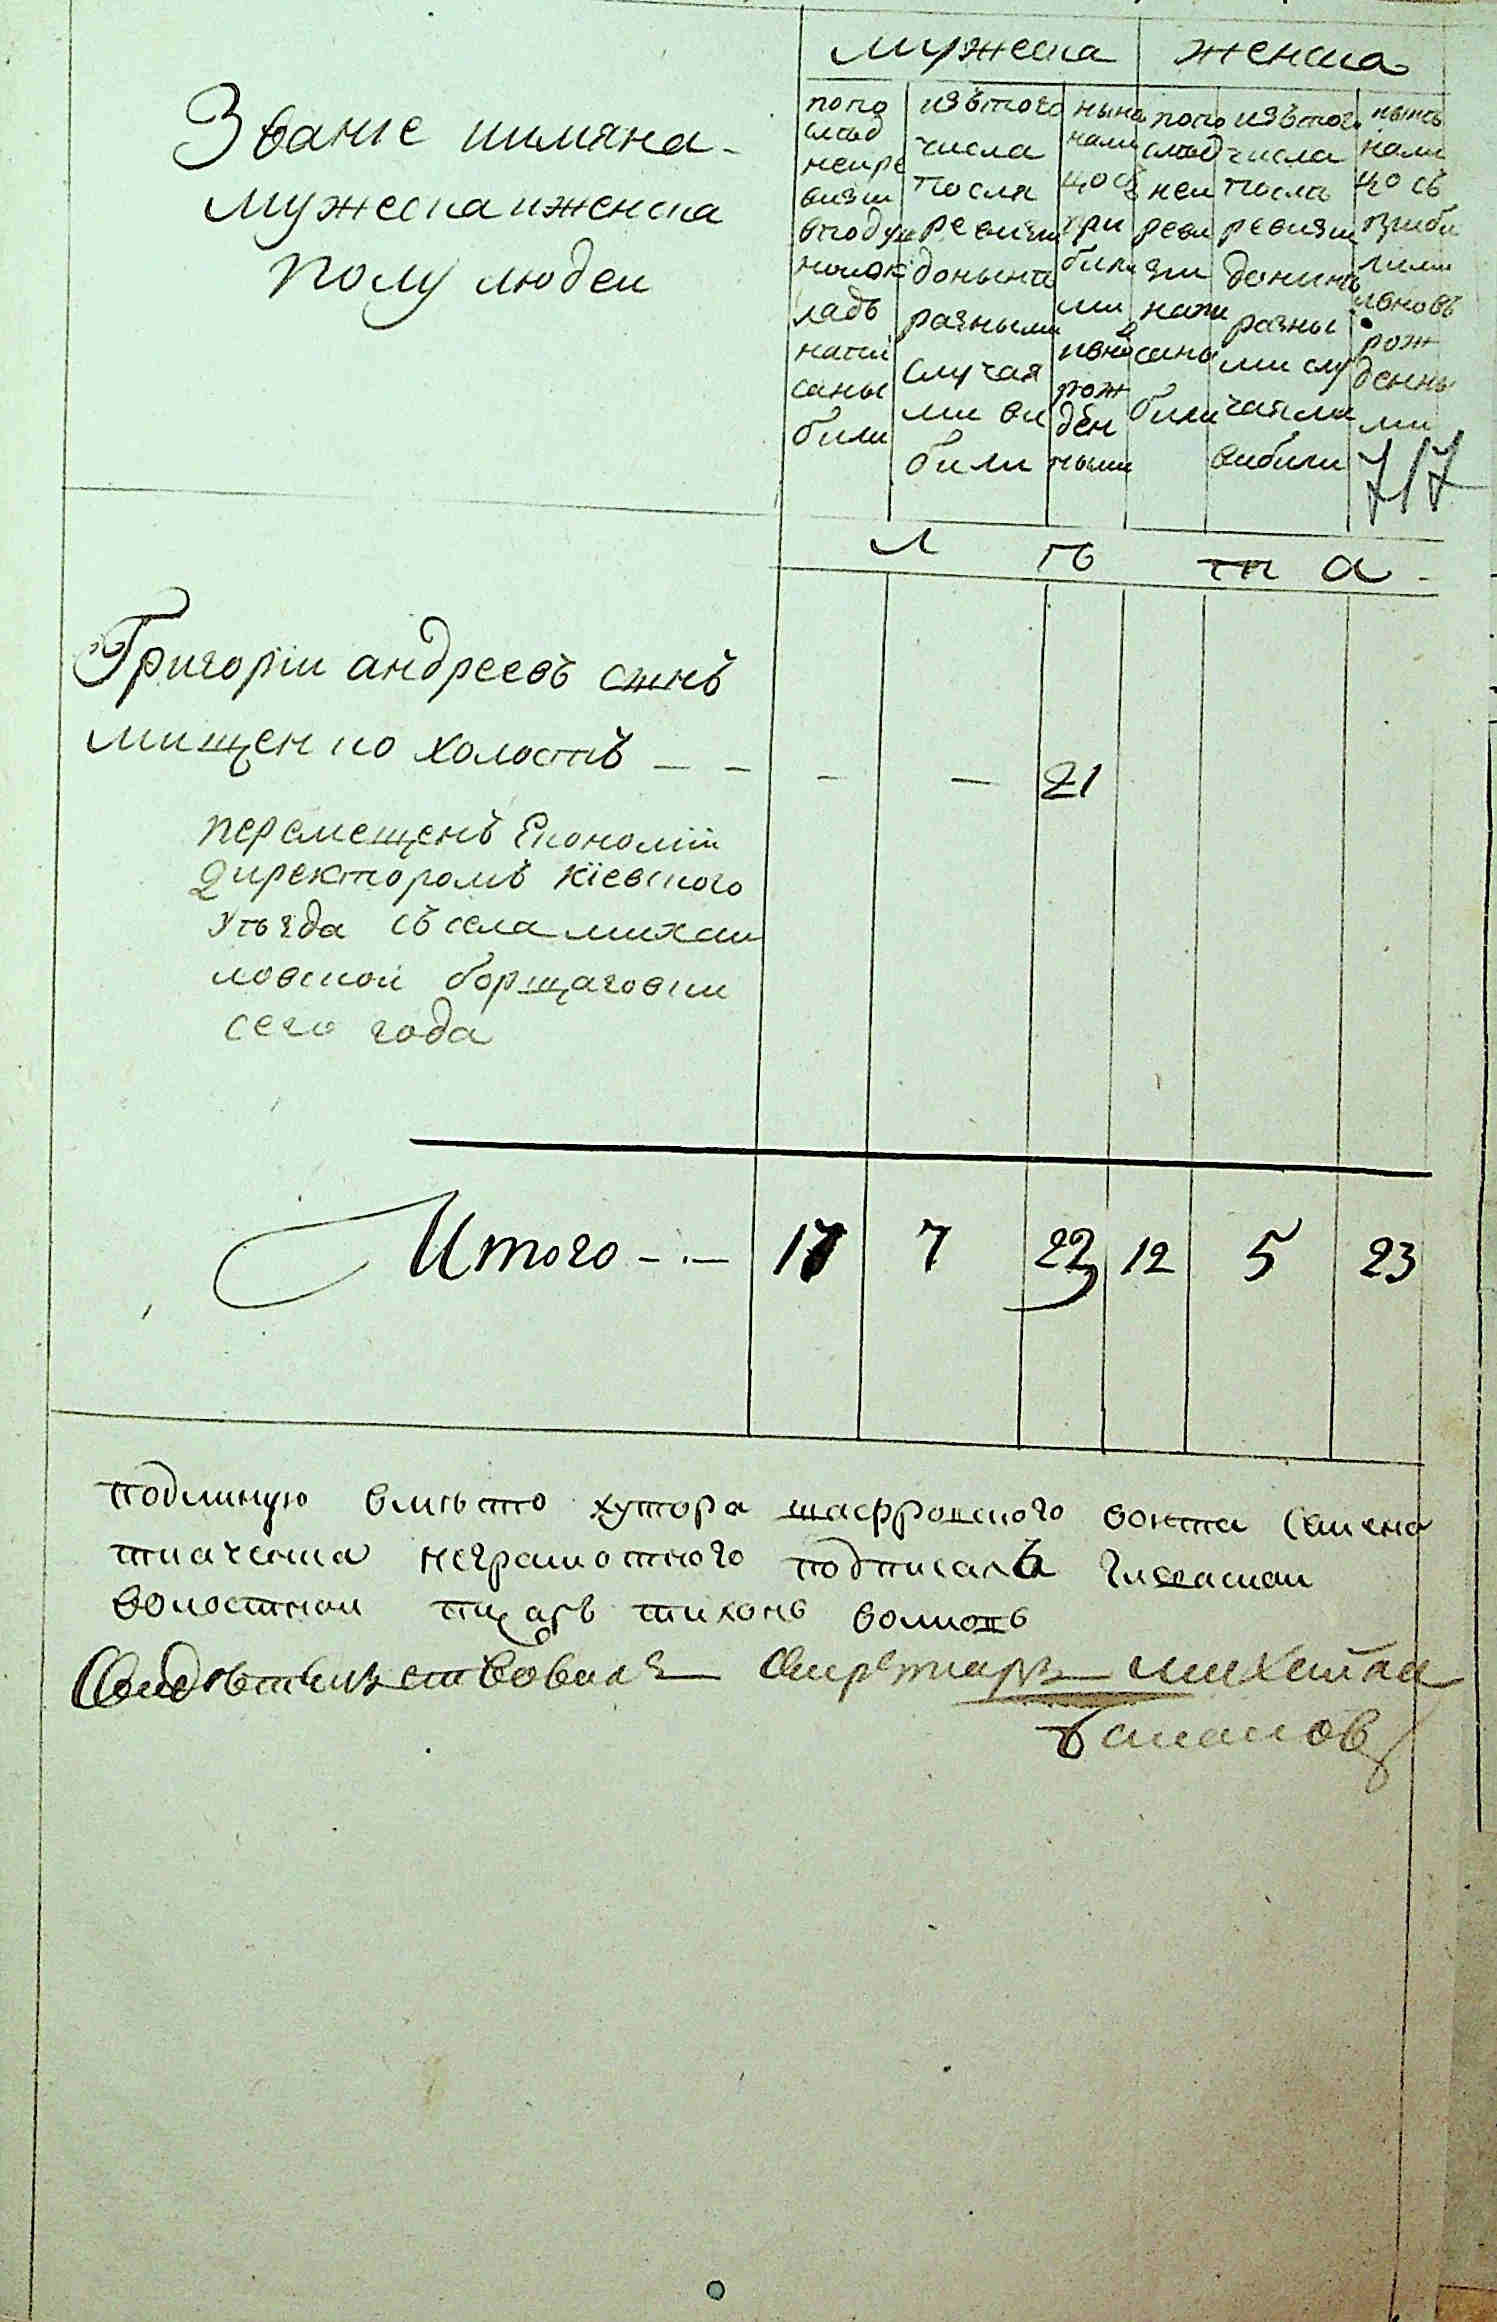 мужеска женска
Званіе иимяна
мужеска иженска
полу людеи
попо
слѣд
неире
визи
вподуш
номок
ладъ
напи
саны
били
изътого
числа
посля
ревизии
донынѣ
разными
случая
ми ви
били
нынѣ
нали
цо съ
при
били
ми
ивно
рож
ден
ными
попо
слѣд
неи
реви
зии
напи
саны
били
изътого
числа
послѣ
ревизии
донинѣ
разны
ми слу
чаями
вибили
нынѣ
нали
цо съ
приби
лими
ивновъ
рож
денны
ми
717
л ѣ т а
Григоріи андреевъ сынъ
мищенко холостъ – – – – 21
перемещенъ Економіи
директоромъ кіевского
уѣзда съ села михаи
ловской борщаговки
сего года
Итого 17 7 22 12 5 23
подлиную вмѣсто хутора шафровского воита Семена
ткаченка неграмотного подписалъ
волостнои писарь тихонъ
Свидѣтелствовалъ Секретарь